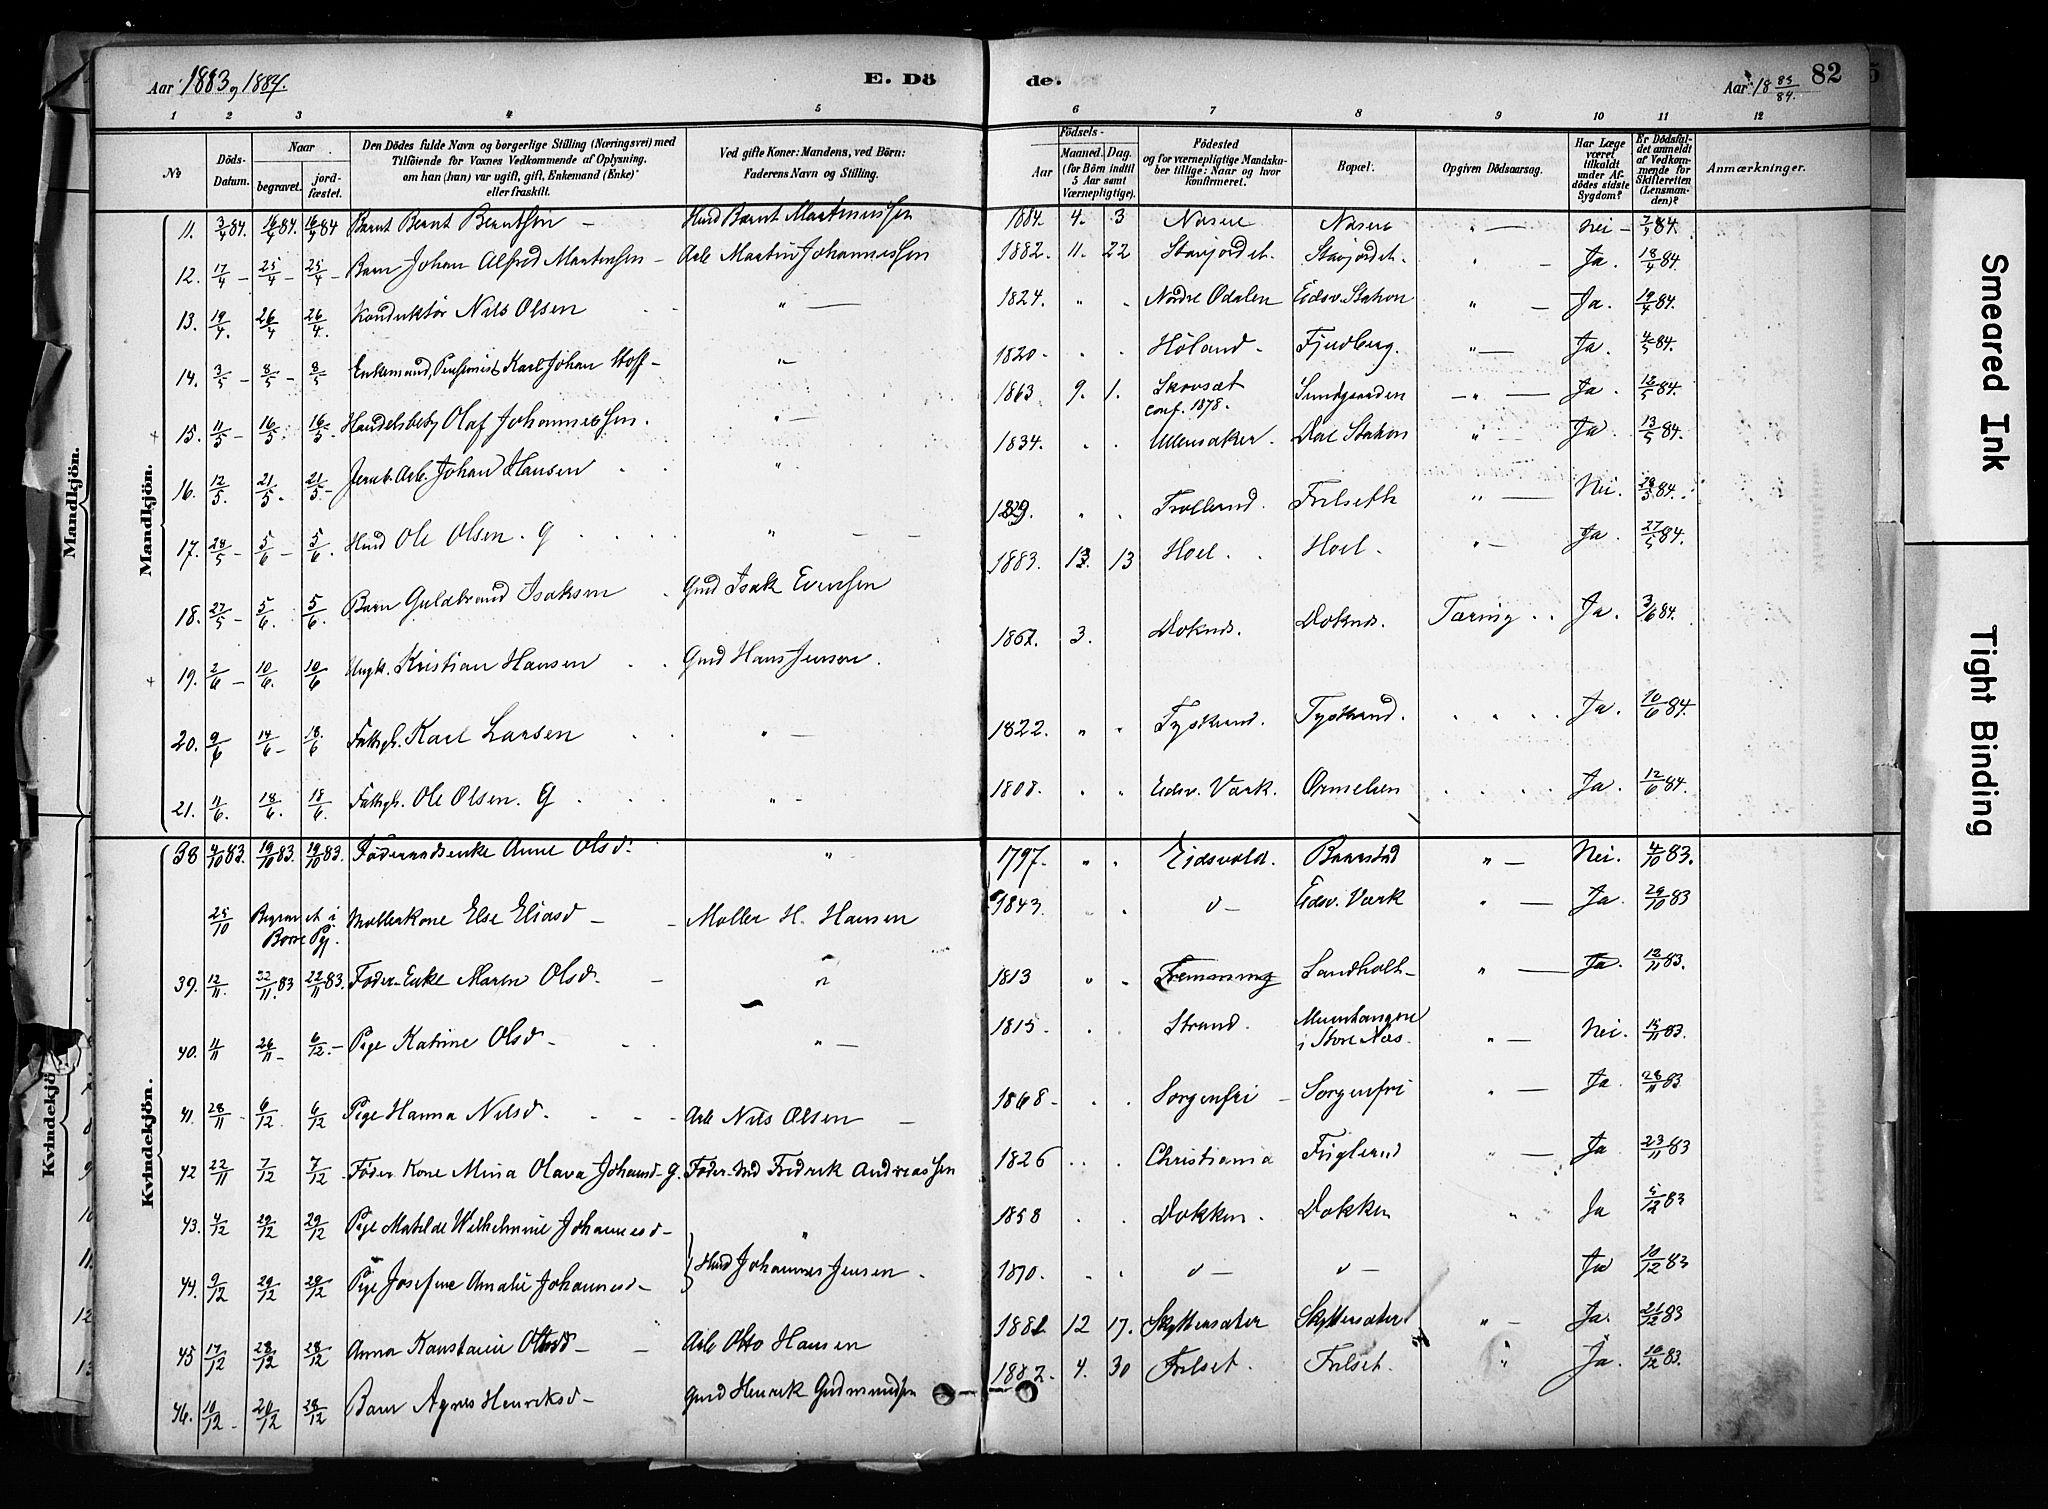 Aar 1883 og 1884.
E. Dö
de.
Aar 18 83/84.
82
5
1 2 3 4 5 6 7 8 9 10 11 12
No
Döds-Datum.
Naar
begravet.
jord-fæstet.
Den Dödes fulde Navn og borgerlige Stilling (Næringsvei) med
Tilföiende for Voxnes Vedkommende af Oplysning,
om han (hun) var ugift, gift, Enkemand (Enke)
eller fraskilt.
Ved gifte Koner: Mandens, ved Börn:
Faderens Navn og Stilling.
Födsels-
Aar
Maaned. Dag.
(for Börn indtil
5 Aar samt
Værnepligtige).
Födested
og for værnepligtige Mandska-
ber tillige: Naar og hvor
konfirmeret.
Bopæl.
Opgiven Dödsaarsag.
Har Læge
været
tilkaldt
under Af-
dödes sidste
Sygdom?
Er Dödsfal-
det anmeldt
af Vedkom-
mende for
Skifteretten
(Lensman-
den)?
Anmærkninger.
Mandkjön.
11. 3/4 84. 16/4 84. 16/4 84 Barnt Bernt Berntsen – Husd Barnt Martinussen 1884. 4. 3 Næsere Næsere " — Nei – 7/4 84.
12. 17/4 – 25/4 – 25/4 – Barn Johan Alfred Martensen – Arb. Martin Johannessen 1882. 11. 22 Stavjordet. Stavjordet. " – Ja. 18/4 84.
13. 19/4. 26/4 26/4. Konduktör Nils Olsen " — 1824. " " Nordre Odalen Eidsv. Station " – Ja. 19/4 84.
14. 3/5 – 8/5 – 8/5 Enkemand, Pensionist Karl Johan Hoff – " 1820 – " " Höland – Fjeldberg. " — Ja. 4/5 84.
15. 11/5 – 16/5. 16/5. Handelsbetj Olaf Johannessen. " – 1863 9. 1. Skovsæt conf. 1878. Sundgaarden – " — Ja. 12/5 84.
16. 12/5. 21/5. 21/5 – Jernb. Arb. Johan Hansen " 1834. " " Ullensaker. Dal Station " – Ja. 13/5 84.
17. 28/5 – 5/6 – 5/6. Husd Ole Olsen. G " – 1829. " " Trolland. Frilseth " — Nei. 28/5 84.
18. 27/5 – 5/6. 5/6. Barn Guldbrand Isaksen Gmd Isak Evensen 1883. 13. 13 Hoel. Hoel. " – Ja. 27/5 84.
19. 2/6 – 10/6. 10/6 Ungk. Kristian Hansen Gmd Hans Jensen. 1867. 3. Doknds. Doknds. Tæring Ja. 3/6 84.
20. 9/6 14/6 – 18/6 Fattigl. Karl Larsen " — 1822. " " Tystrand. Tystrand. Ja. 10/6 84.
21. 11/6. 18/6. 18/6. Fattigl. Ole Olsen. G " – 1808. " " Eidsv. Værk. Ormelien Ja. 12/6 84.
Kvindekjön.
38 4/10 83. 19/10 83. 19/10 83. Föderaadsenke Anne Olsd. " 1797. " " Eidsvold. Baarstad " — Nei. 4/10 83.
25/10 Begravet i Borre Pgj. Möllerkone Else Eliasd – Möller H. Hansen 1843. " " " – Eidsv. Værk " — Ja. 29/10 83
39. 12/11. 22/11. 83 22/11 83. Föder-Enke Maren Olsd. – " 1813 " " Fremming Sandholt – " — Ja. 12/11 83.
40. 11/11 26/11 – 6/12. – Pige Katrine Olsd. " — 1815. Strand. i Store Næs. " — Nei. 15/11 83.
41. 28/11 – 6/12. 6/12 Pige Hanna Nilsd. Arb Nils Olsen – 1868 – Sorgenfri – Sorgenfri " — Ja. 28/11 83
42 22/11 7/12 7/12. Föder. Kone Mina Olava Johansd. G. Föder-md Fredrik Andreassen 1826 Christiania Fuglerud " — Ja. 23/11 83
43. 4/12 29/12 29/12 Pige Matilde Wilhelmine Johannesd – " 1858 Dokken. Dokken " Ja 5/12 83
44. 9/12 29/12 29/12 Pige Josefine Amalie Johannesd – } Husd Johannes Jensen. 1870. " – " – Ja 10/12 83
45 17/12 28/12 28/12 Anna Konstanse Ottosd – Arb Otto Hansen 1881 12 17. Skyttersæter Skyttersæter " – Ja. 21/12 83
46. 10/12 – 20/12 28/12 Barn Agnes Henriksd – Gmd Henrik Gudmundsen 1882. 4. 30 Frilset. Frilset. " Ja. 10/12 83.
Mandkjön.
Kvindekjön.
Smeared Ink
Tight Binding